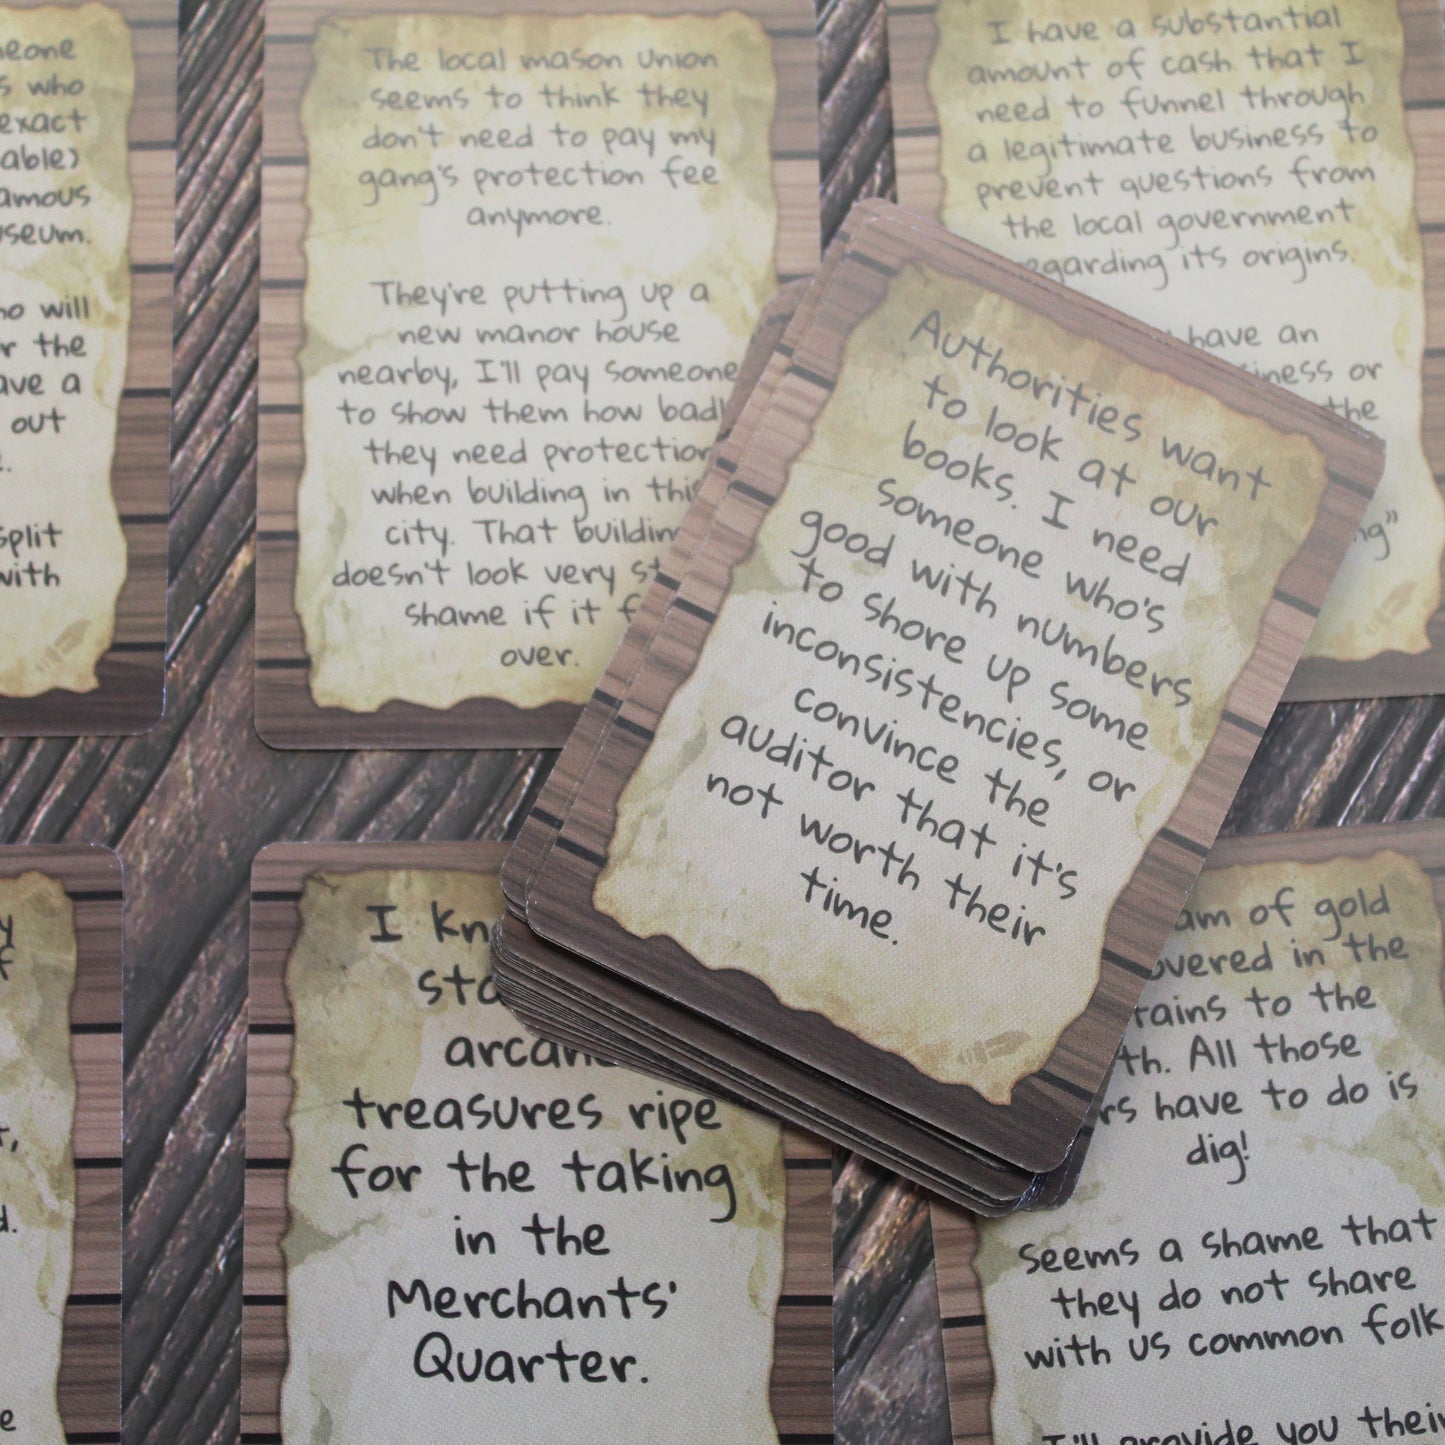 who
exact
able)
seum.
who will
the
a
out
split
with
The local mason union
seems to think they
don't need to pay my
gang's protection fee
anymore.
They're putting up a
new manor house
nearby, I'll pay someone
to show them how
they need
when building in
city. That
doesn't look very
shame if it
over.
I have a substantial
amount of cash that I
need to funnel through
a legitimate business to
prevent questions from
the local government
regarding its origins.
have an
or
the
Authorities want
to look at our
books. I need
someone who's
good with numbers
to shore up some
inconsistencies, or
convince the
auditor that it's
not worth their
time.
I
treasures ripe
for the taking
in the
Merchants'
Quarter.
of gold
in the
to the
All those
have to do is
dig!
Seems a shame that
they do not share
with us common folk
I'll provide you